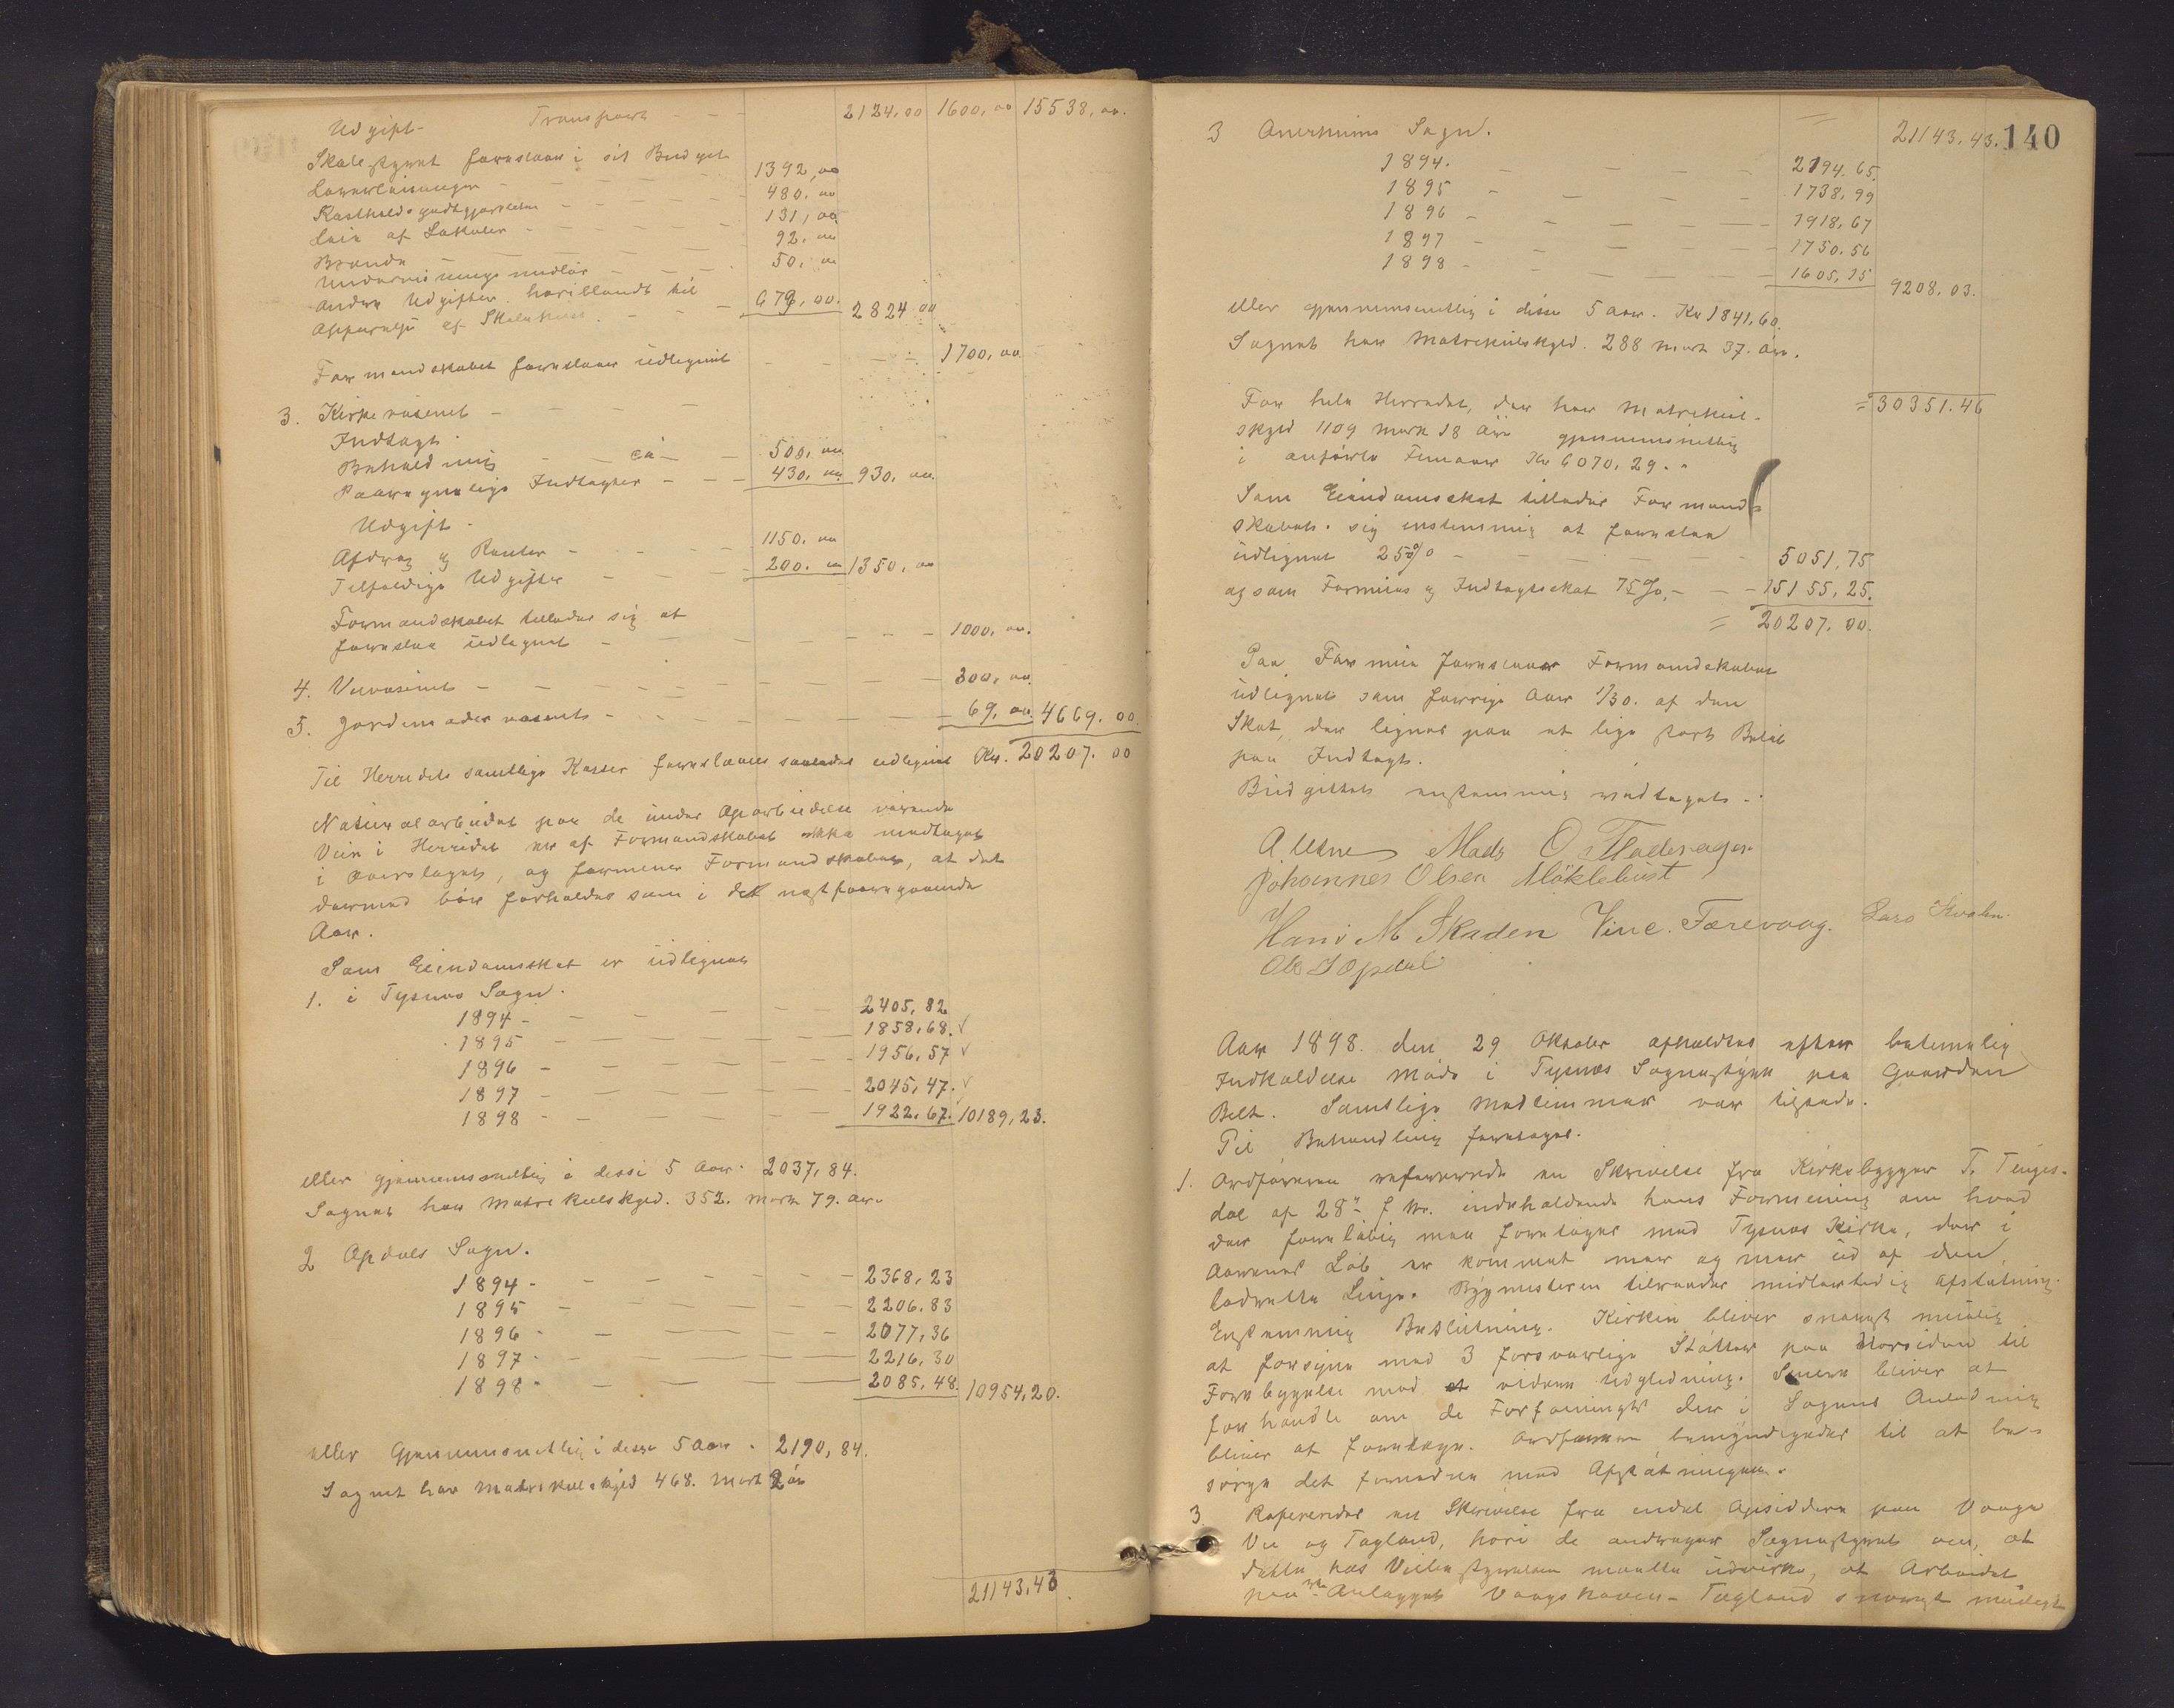 Udgift Transport - - 2124,00 1600,00 15538,00.
Skolestyret foreslaar i sit Budget
Lærerlønninger - - - 1392,00
Kostholdsgodtgjørelse - - - 480,00
Leie af Lokaler - - - 131,00
Brænde - - - 92,00
Undervisningsmidler - - - 50,00
andre Udgifter, heriblandt til
Opførelse af Skolehus. - - - 679,00. 2824 00
Formandskabet foreslaar udlignet - - 1700,00
3. Kirkevæsenet - - -
Indtægt.
Beholdning - - ca - 500,00
Paaregnelige Indtægter - - - 430,00. 930,00.
Udgift.
Afdrag og Renter - - - 1150,00
Tilfældige Udgifter - - - 200,00 1350,00
Formandskabet tillader sig at
foreslaa udlignet - - - 1000,00.
4. Veivæsenet - - - 300,00.
5. Jordemodervæsenet - - - 69,00. 4669.00.
Til Herredets samtlige Kasser foreslaaes saaledes udlignet Kr. 20207.00
Naturalarbeidet paa de under Oparbeidelse værende
Veie i Herredet er af Formandskabet ikke medtaget
i Overslaget, og formener Formandskabet, at det
dermed bør forholdes som i det næstforegaaende
Aar.
Som Eiendomsskat er udlignet
1. i Tysnes Sogn.
1894 - - - 2405,82
1895 - - - 1858,68. ✓
1896 - - - 1956,57 ✓
1897 - - - 2045,47. ✓
1898 - - - 1922,67. 10189,23.
eller gjennemsnitlig i disse 5 Aar. 2037,84.
Sognet har Matrikulskyld. 352. Mark 79. øre
2 Opdals Sogn.
1894 - - - 2368,23
1895 - - - 2206.83
1896 - - - 2077,36
1897 - - - 2216,30
1898 - - - 2085,48. 10954,20.
eller Gjennemsnitlig i disse 5 Aar. 2190,84.
Sognet har Matrikulskyld 468. Mark 2 ør
21143,43.
140
21143,43.
3 Onarheims Sogn.
1894. - - - 2194.65.
1895 - - - 1738,99
1896 - - - 1918,67
1897 - - - 1750.56
1898 - - - 1605,15 9208.03.
eller gjennemsnitlig i disse 5 Aar. Kr 1841,60.
Sognet har Matrikulskyld. 288 Mark 37. øre.
For hele Herredet, der har Matrikul- = 30351.46
skyld 1109 Mark 18 øre gjennemsnitlig
i anførte Femaar Kr 6070,29.
Som Eiendomsskat tillader Formand-
skabet sig enstemmig at foreslaa
udlignet 25% - - - 5051,75
og som Formues og Indtægtsskat 75%, - - 15155,25.
= 20207.00.
Paa Formue foreslaaar Formandskabet
udlignet som forrige Aar 1/30. af den
Skat, der lignes paa et lige stort Beløb
paa Indtægt.
Budgettet enstemmig vedtaget.
Mads O Fladeager
Johannes Olsen Møklebust
Hans M Skaden Vinc. Færevaag. Lars Kvalen.
Ole J Opdal
Aar 1898. den 29 Oktober afholdtes efter betimelig
Indkaldelse Møde i Tysnes Sognestyre paa Gaarden
Belt. Samtlige Medlemmer var tilstede.
Til Behandling foretages.
1. Ordføreren refererede en Skrivelse fra Kirkebygger T. Tenges-
dal af 28de f. M. indeholdende hans Formening om hvad
der foreløbig maa foretages med Tysnes Kirke, der i
Aarenes Løb er kommet mer og mer ud af den
lodrette Linje. Bygmesteren tilraader midlertidig Afstøtning.
Enstemmig Beslutning. Kirken bliver snarest mulig
at forsyne med 3 forsvarlige Støtter paa Norsiden til
Forebyggelse mod videre Udglidning. Senere bliver at
forhandle om de Forføininger der i Sagens Anledning
bliver at foretage. Ordføreren bemyndigedes til at be-
sørge det fornødne med Afstøtningen.
3. Refereredes en Skrivelse fra endel Opsiddere paa Vaage
Vee og Tægland, hvori de andrager Sognestyret om, at
dette hos Veibestyrelsen maatte udvirke, at Arbeidet
paa Anlægget Vaagshaven - Tægland snarest muligt